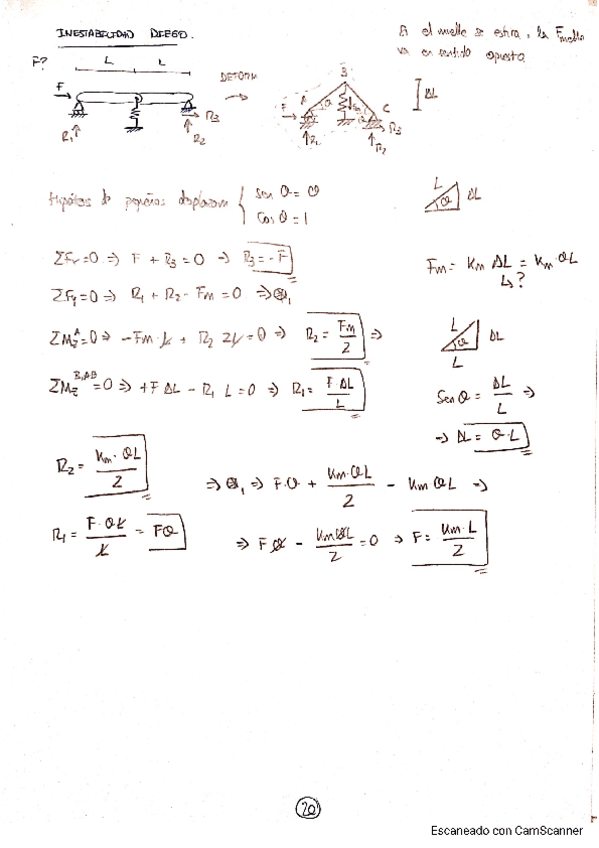 INESTABILIDAD DIEGO.
Si el muelle se estira, la Fmuelle
va en sentido opuesto
F?
L L
F
R₁ R₂ R₃
DEFORM
A B C
F θ θ
R₁ R₂ R₃
ΔL
Hipótesis de pequeños desplazam { Sen θ = θ
Cos θ = 1
L θ ΔL
ΣFx=0 => F + R₃ = 0 -> R₃ = -F
Fm = Km ΔL = Km·θL
↳?
ΣFy=0 => R₁ + R₂ - Fm = 0 => ⊗₁
ΣM_z^A=0 => -Fm·L + R₂ 2L = 0 => R₂ = Fm/2 =>
L θ ΔL
L
ΣM_z^B,AB = 0 => +F ΔL - R₁ L = 0 => R₁ = F·ΔL/L
Sen θ = ΔL/L =>
-> ΔL = θ·L
R₂ = Km·θL/2
=> ⊗₁ => F·θ + Km·θL/2 - Km θL =>
R₁ = F·θL/L = Fθ
=> Fθ - KmθL/2 = 0 => F = Km·L/2
20
Escaneado con CamScanner